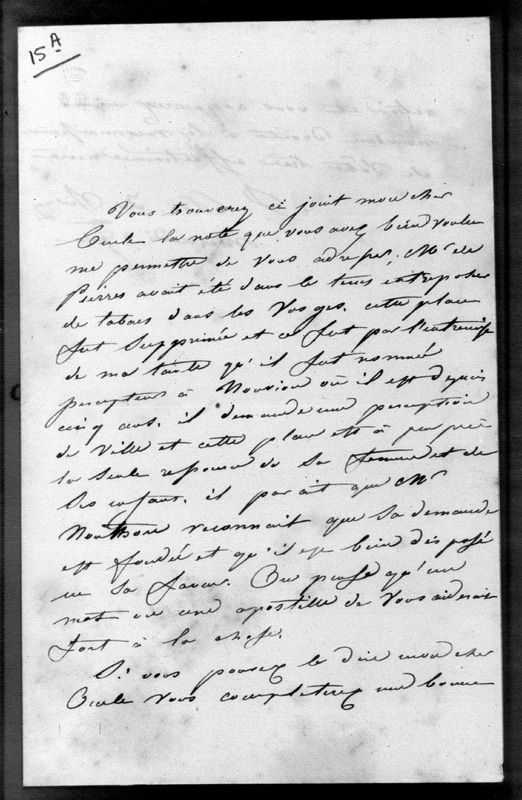 15A
Vous trouverez ci joint mon cher
Oncle la note que vous avez bien voulu
me permettre de vous adresser, Mr de
Pierres avait été dans le tems entreposeur
de tabacs dans les Vosges. cette place
fut supprimée et ce fut par l'entremise
de ma tante qu'il fut nommé
percepteur à où il est depuis
cinq ans. il demande une perception
de ville et cette place est à peu près
la seule ressource de sa femme et de
ses enfans. il parait que Mr
reconnait que sa demande
est fondée et qu'il est bien disposé
en sa faveur. On pense qu'un
mot ou une apostille de vous aiderait
fort à la chose.
Si vous pouvez le dire mon cher
Oncle vous completerez une bonne